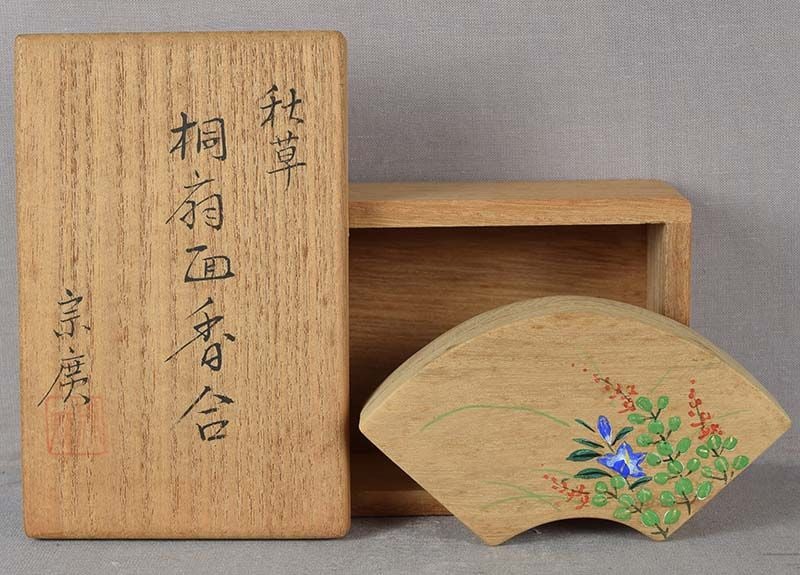 秋草
桐扇面香合
宗廣